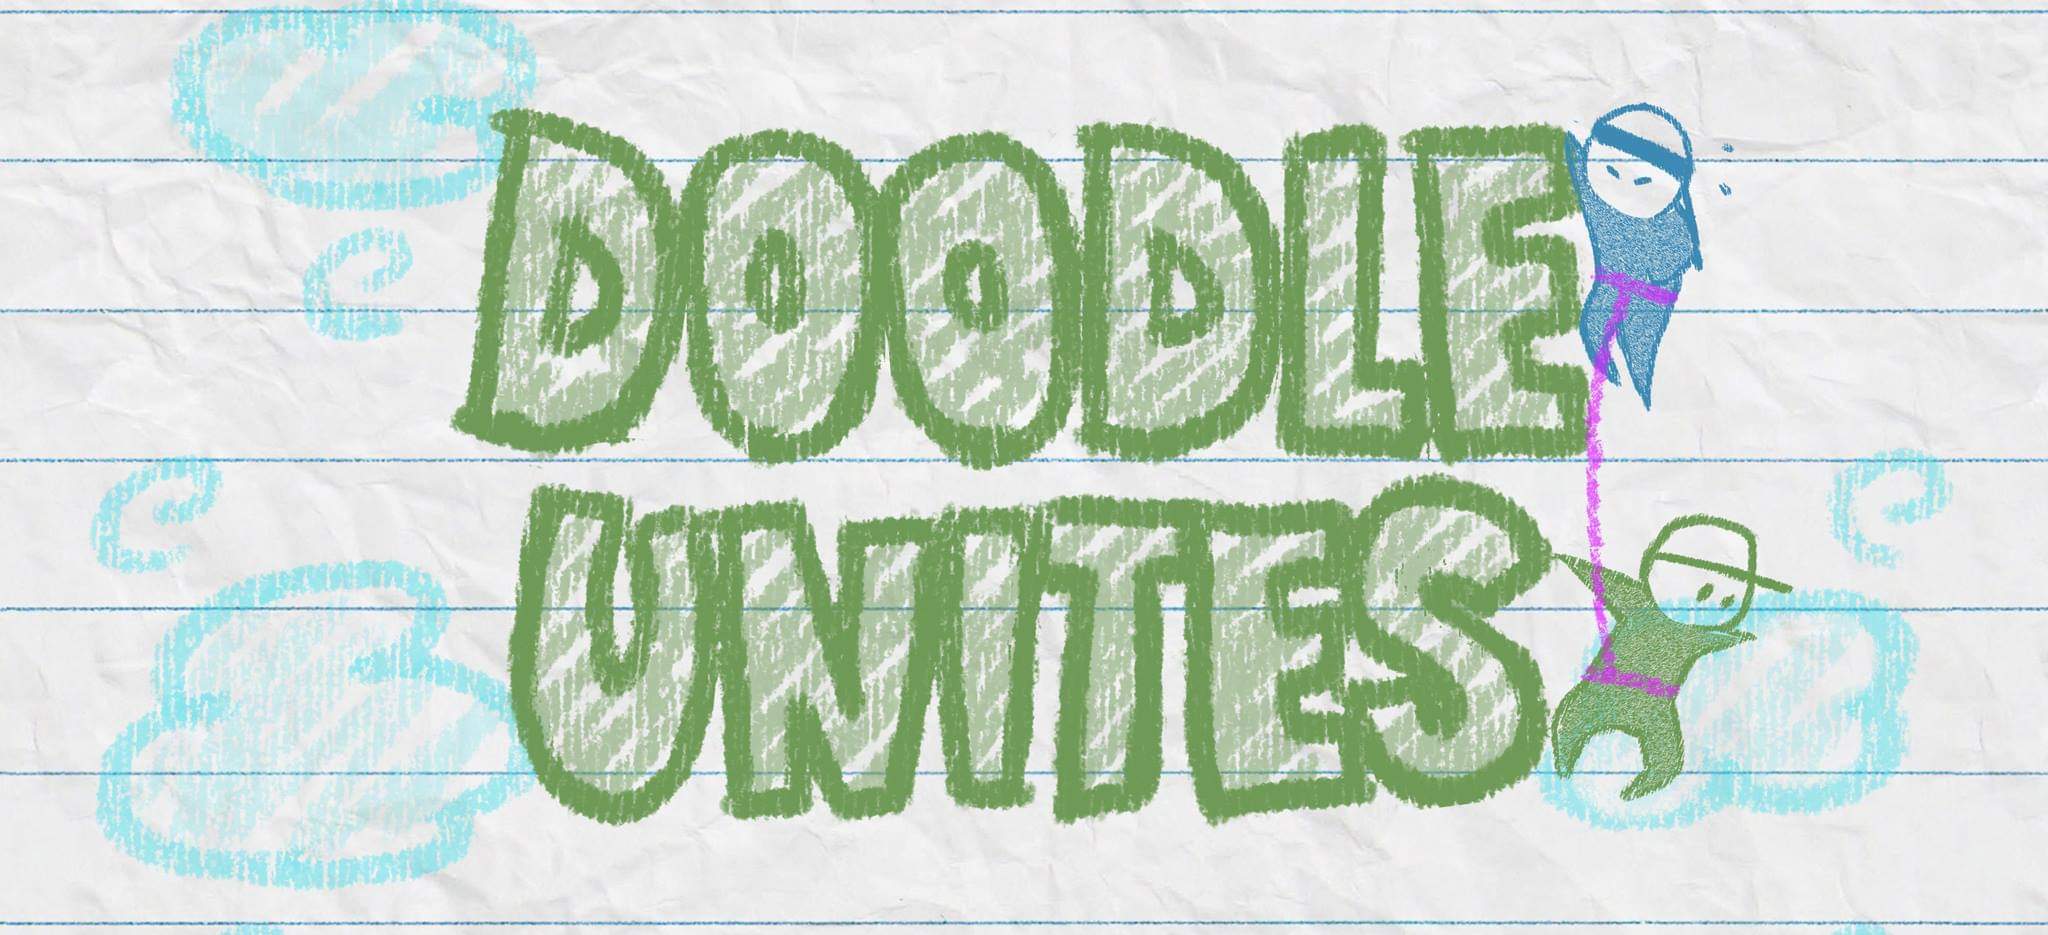 DOODLE
UNITES